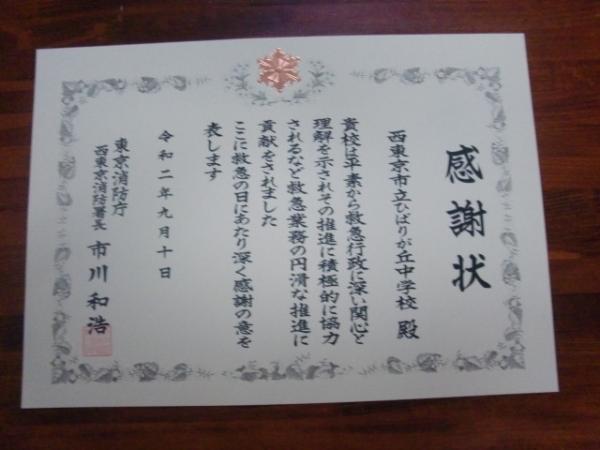 感謝状
西東京市立ひばりが丘中学校 殿
貴校は平素から救急行政に深い関心と
理解を示されその推進に積極的に協力
されるなど救急業務の円滑な推進に
貢献をされました
ここに救急の日にあたり深く感謝の意を
表します
令和二年九月十日
東京消防庁
西東京消防署長 市川和浩